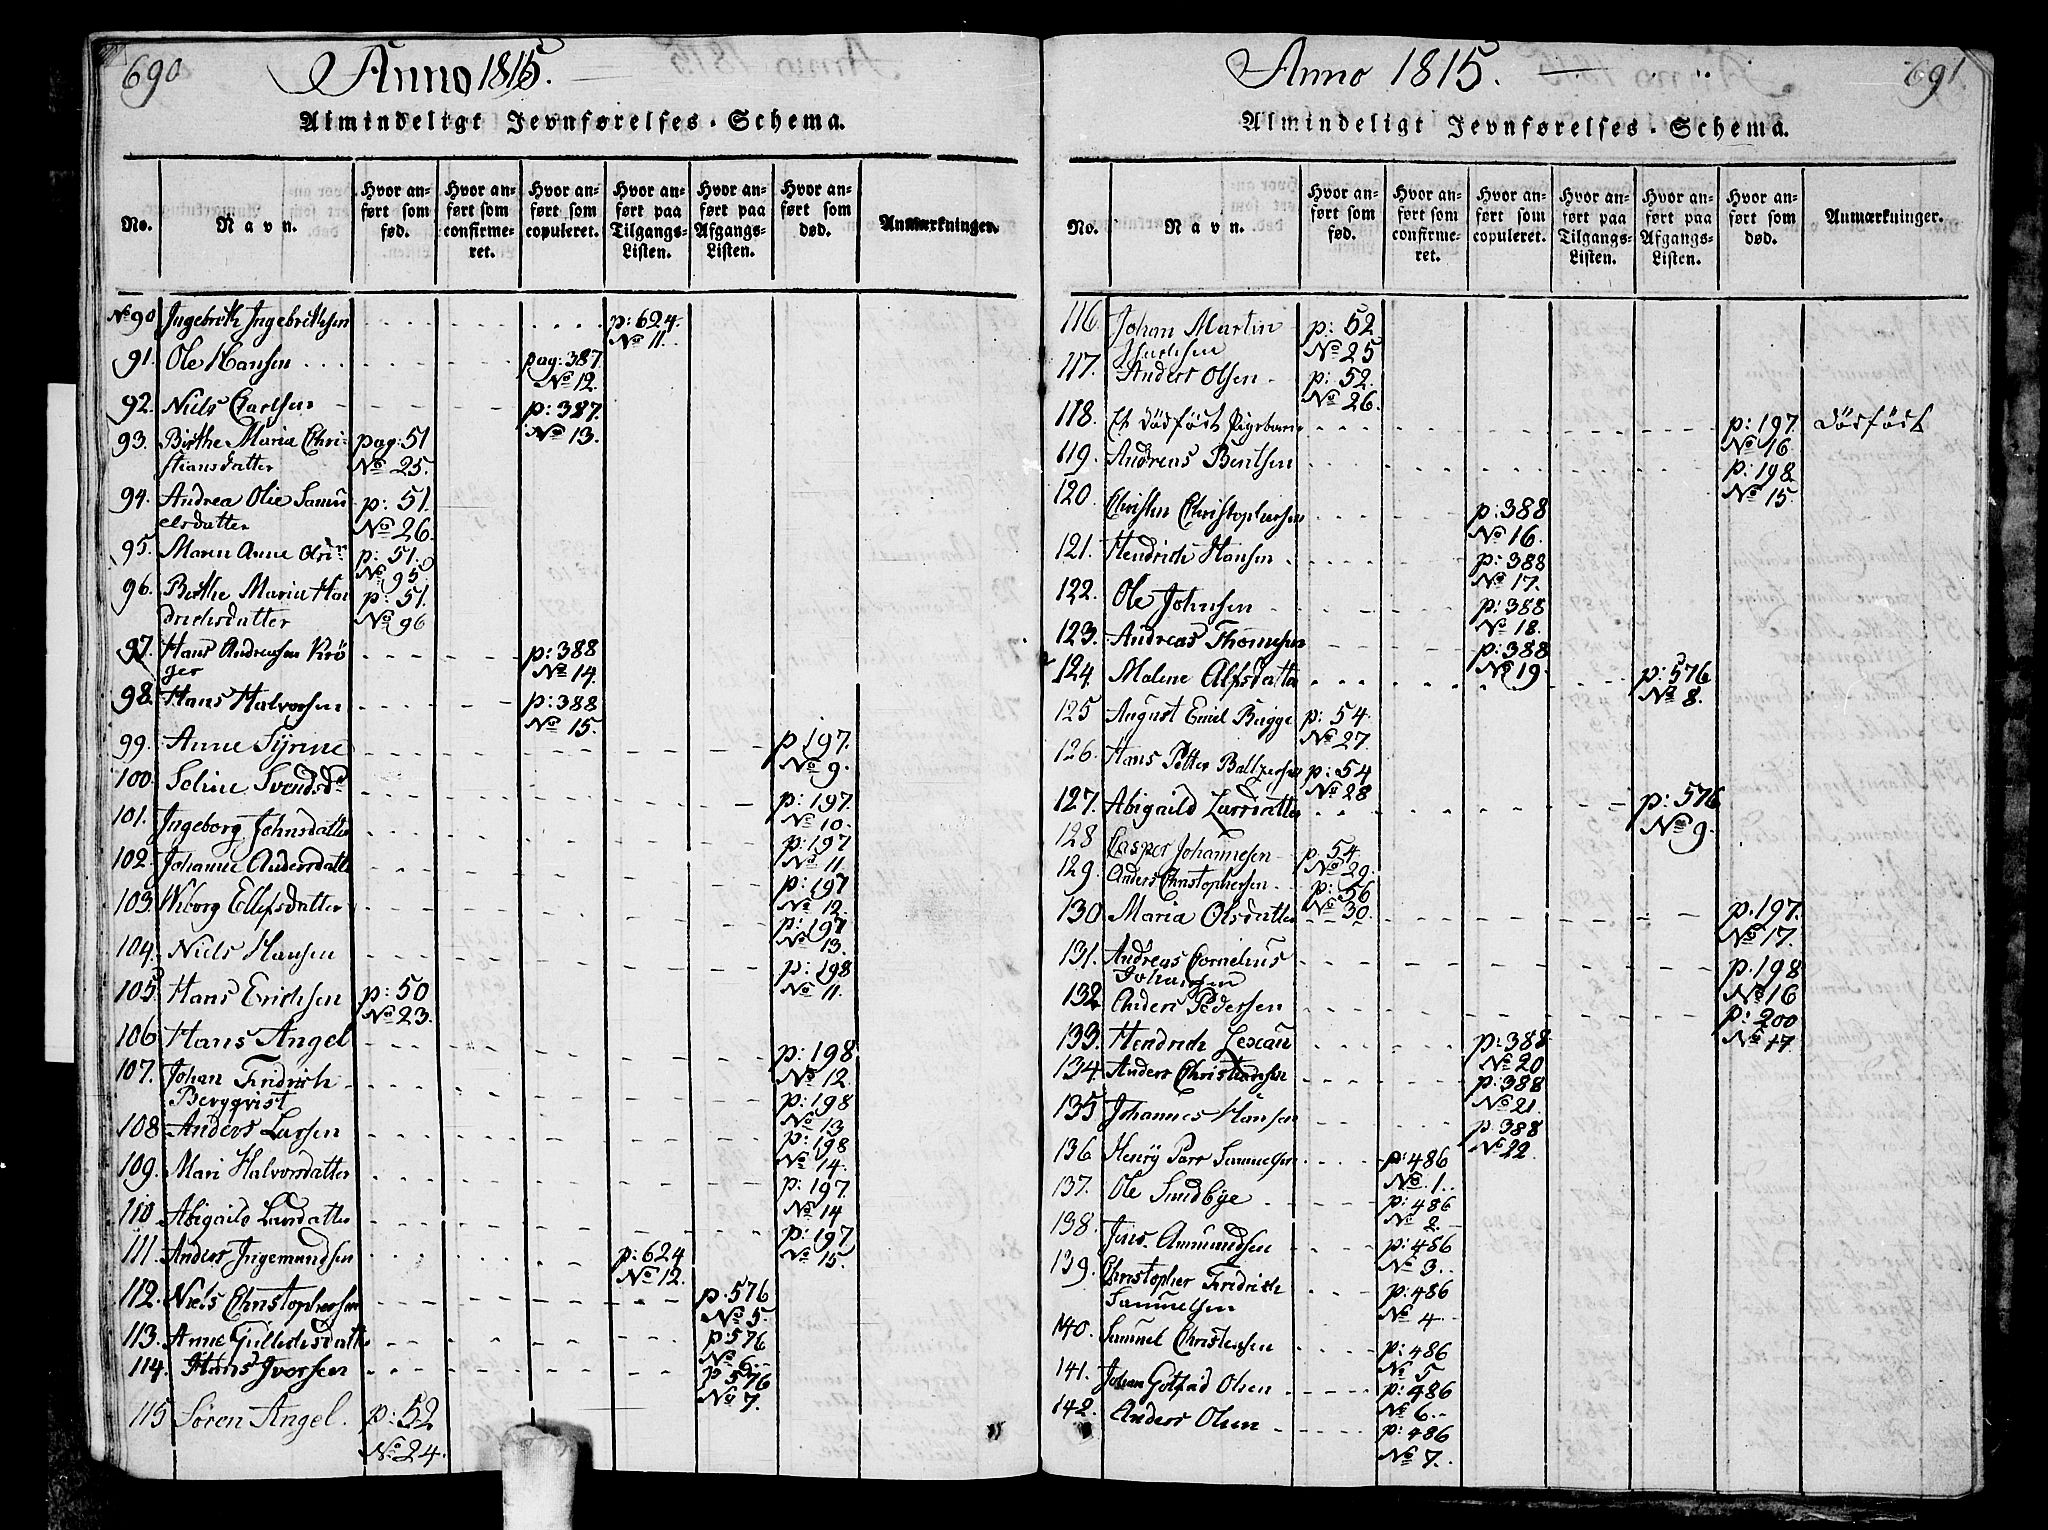 690
Anno 1815.
Almindeligt Jevnførelses-Schema.
No. Navn. Hvor anført som fød. Hvor anført som confirmeret. Hvor anført som copuleret. Hvor anført paa Tilgangs-Listen. Hvor anført paa Afgangs-Listen. Hvor anført som død. Anmærkninger.
No 90 Ingebrith Ingebrithsen p: 624. No 11.
91. Ole Hansen pag: 387 No 12.
92. Niels Carlsen p: 387. No 13.
93. Birthe Maria Chri-
stiansdatter pag: 51 No 25.
94. Andrea Olie Samu
elsdatter p: 51. No 26.
95. Maren Anne Olsdr p: 51. No 95
96. Berthe Maria Hen
drichsdatter p: 51. No 96
97. Hans Andreasen Krö
ger p: 388 No 14.
98. Hans Halvorsen p: 388 No 15.
99. Anne Syrine p 197. No 9.
100. Seline Svendsdr p: 197. No 10.
101. Ingeborg Johnsdatter p: 197 No 11.
102. Johanne Andersdatter p: 197 No 12.
103. Wiborg Ellefsdatter p: 197 No 13.
104. Niels Hansen p: 198 No 11.
105. Hans Erichsen p: 50 No 23.
106 Hans Angel p: 198 No 12.
107. Johan Fridrich
Bergqvist p: 198 No 13
108 Anders Larsen p: 198 No 14.
109. Mari Halvorsdatter p: 197. No 14
110 Abigaild Larsdatter p: 197 No 15.
111. Anders Ingemundsen p: 624 No 12.
112. Niels Christophersen p. 576 No 5.
113. Anne Gulledesdatter p: 576 No 6.
114. Hans Iversen p 576 No 7.
115 Søren Angel. p: 52 No 24.
691
Anno 1815.
Almindeligt Jevnførelses-Schema.
No. Navn. Hvor anført som fød. Hvor anført som confirmeret. Hvor anført som copuleret. Hvor anført paa Tilgangs-Listen. Hvor anført paa Afgangs-Listen. Hvor anført som død. Anmærkninger.
116. Johan Martin p: 52. No 25
117. Anders Olsen p: 52. No 26.
118. Et dödfödt Pigebarn p: 197. No 16. Dödfödt
119. Andreas Bentsen p: 198. No 15.
120. Christen Christophersen p: 388 No 16.
121. Hendrich Hansen p: 388 No 17.
122. Ole Johnsen p: 388 No 18.
123. Andreas Thomesen p: 388 No 19.
124. Malene Alfsdatter p: 576 No 8.
125 August Emil Bugge p: 54. No 27.
126. Hans Petter Baltzersen p: 54 No 28
127. Abigaild Larsdatter p: 576 No 9.
128 Casper Johannesen p. 54. No 29.
129. Anders Christophersen p: 56 No 30.
130 Maria Olsdatter p. 197. No 17.
131. Andreas Cornelius
Johansen p. 198 No 16
132. Anders Pedersen p: 200 No 17.
133. Hendrich Lexau p: 388 No 20
134. Anders Christiansen p: 388 No 21.
135 Johannes Hansen p: 388 No 22.
136 Henry Parr Samuelsen p: 486 No 1.
137. Ole Sundbye p: 486 No 2.
138. Jens Amundsen p: 486 No 3.
139. Christopher Fridrich
Samuelsen p: 486 No 4
140. Samuel Christensen p: 486 No 5
141. Johan Gotfrid Olsen p: 486 No 6.
142. Anders Olsen p: 486 No 7.